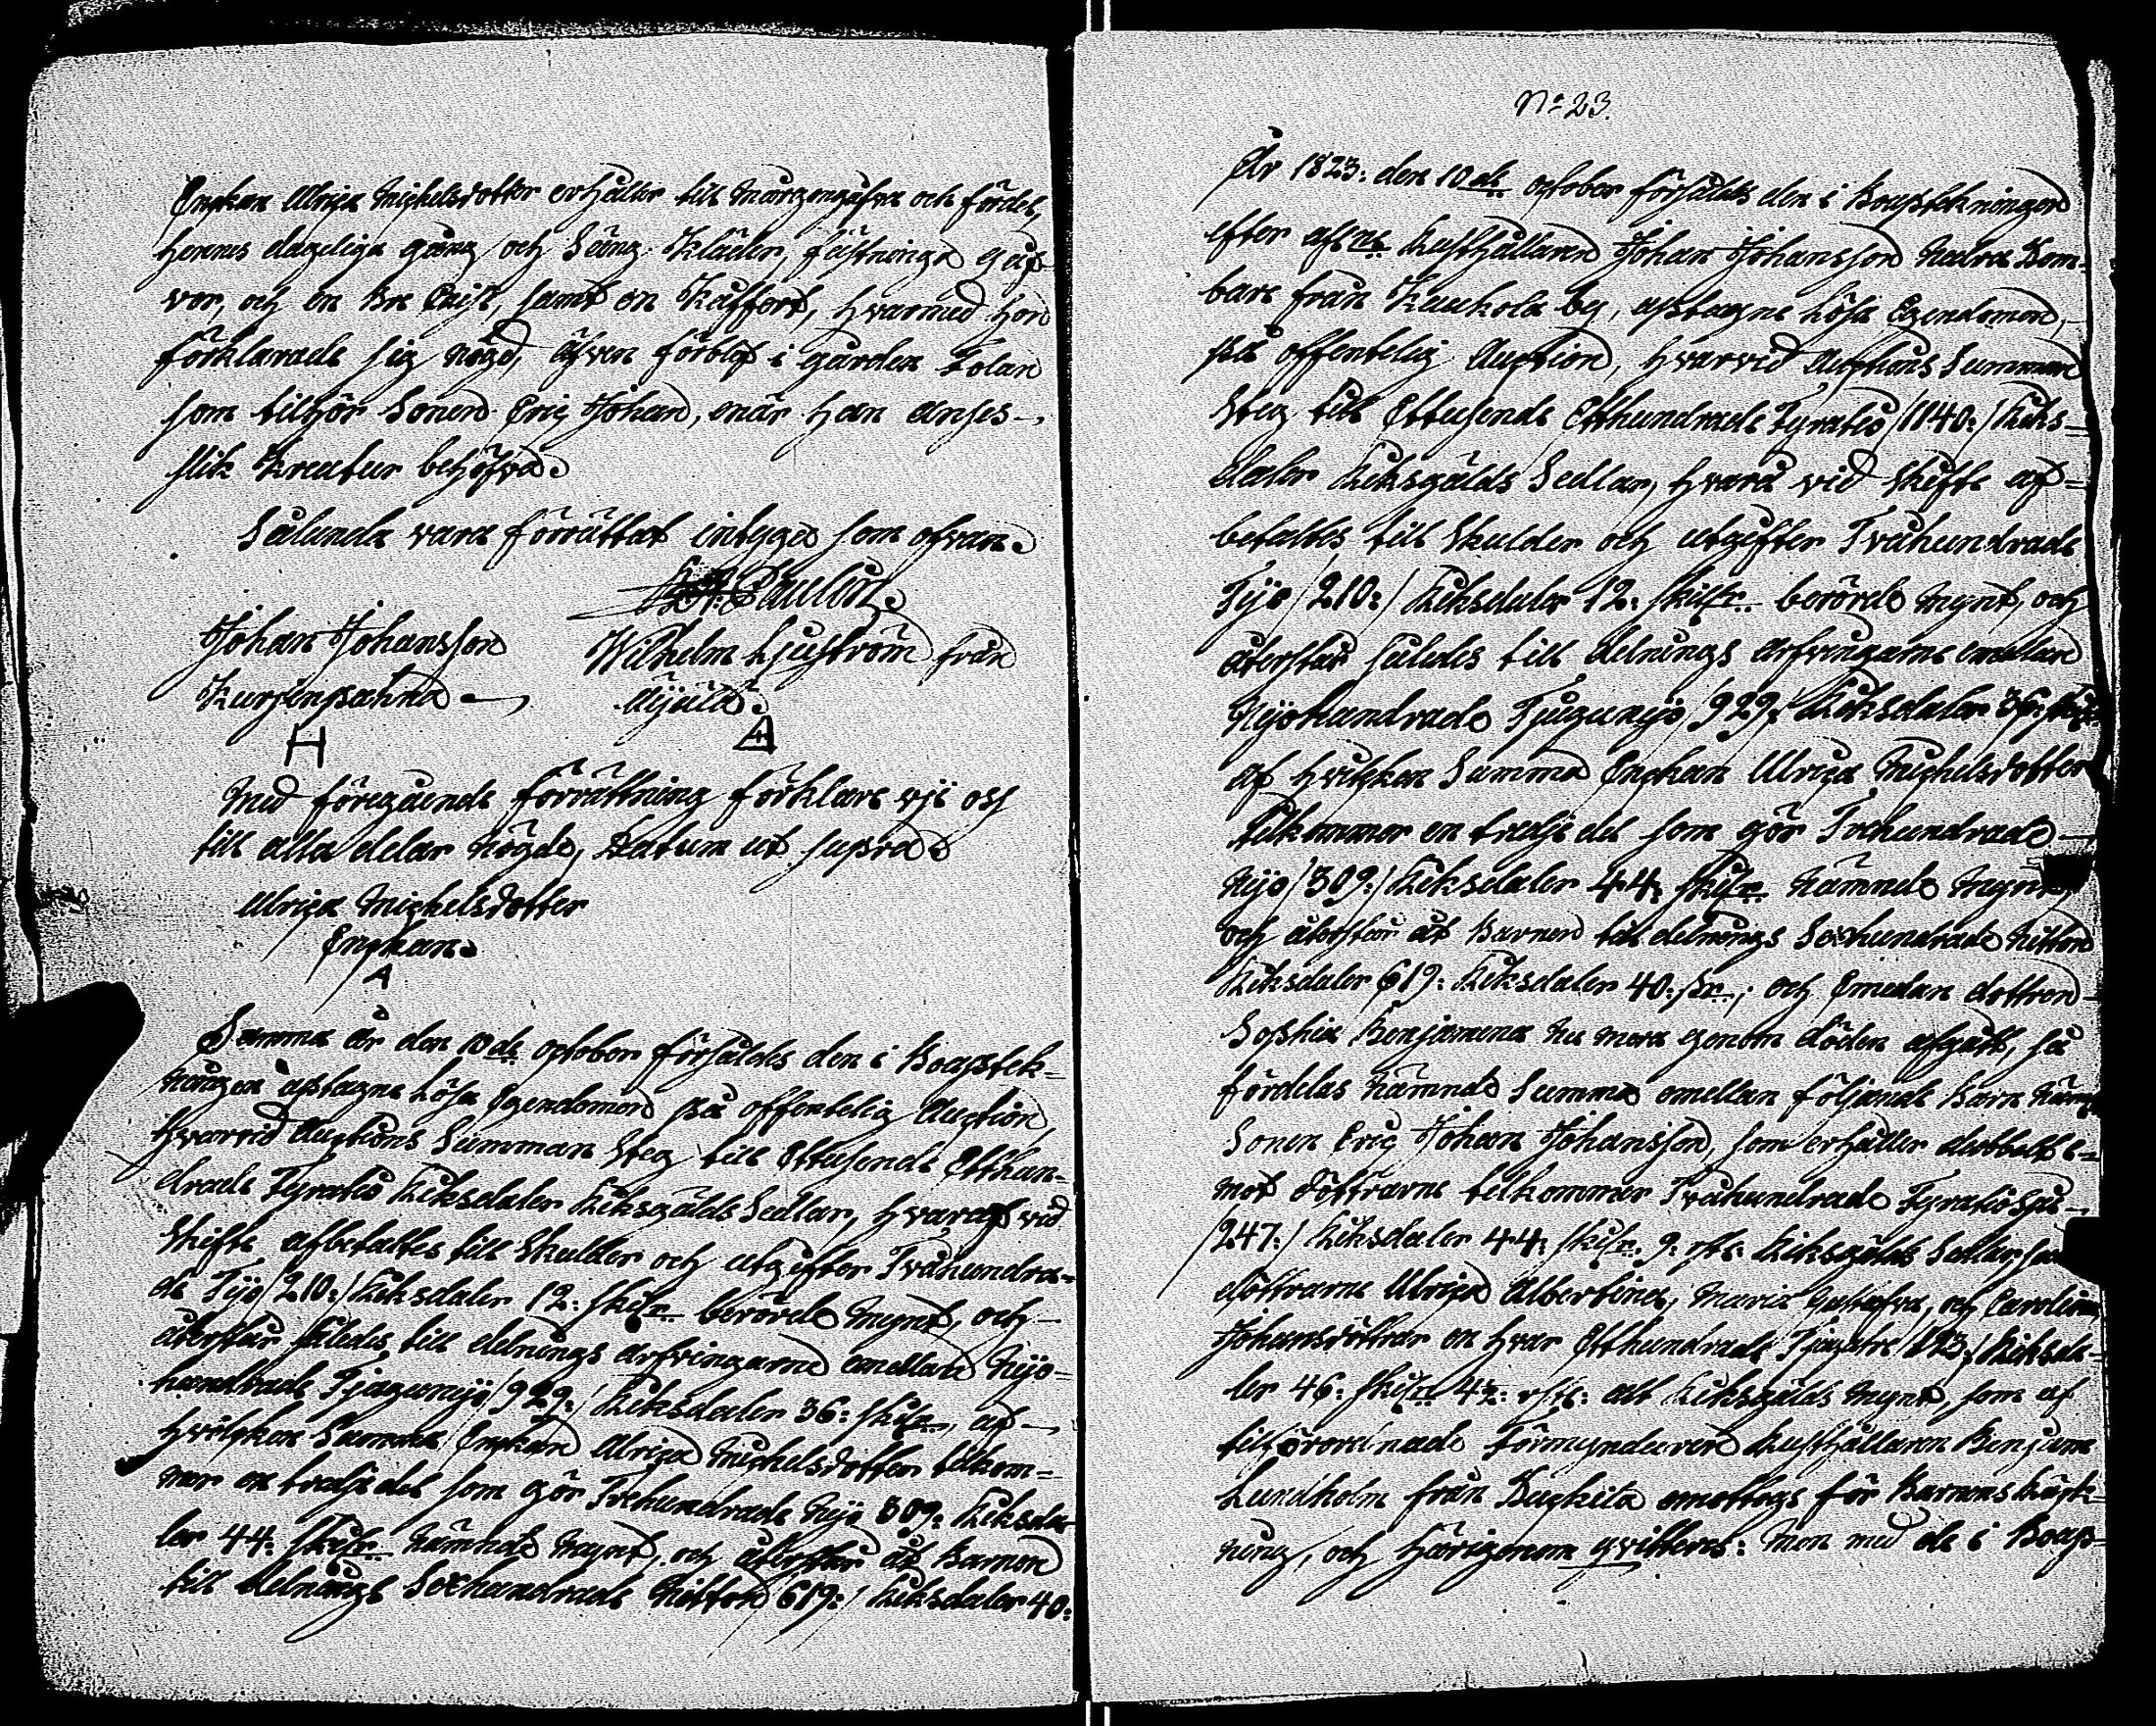 Enckan Ulrica Michelsdotter erhåller till Morgongåfva och fördel,
hennes dageliga gång och Säng Kläder, fästninge gåf-
vor, och en Bra Qvist, samt en Kåffert, hvarmed hon
förklarade sig nögd, äfven förblef i gården Folan
som tillhör Sonen Eric Johan, enär han anses
slik Kreatur behöfva.
Sålunda vara förrättat intyga som ofvan.
Paulin.
Johan Johansson Wilhelm Ljuström från
H
Med föregående förrättning förklare vji oss
till alla delar nögde, Datum ut supra
Ulrica Michelsdotter
Enckan
Samma år den 10de october försåldes den i Bouptek-
ningen uptagne lösa Egendomen på offentelig Auction,
hvarvid Auctions Summan Steg till Ettusende Etthun-
drade Fyratio Riksdaler Riksgälds Sedlar, hvaraf vid
Skifte afbetaltes till Skulder och utgifter Tvåhundra-
de Tijo /210:/ Riksdaler 12: skilr. berörde Mynt, och
återstår således till delnings arfvingarne emellan Nijo-
hundrade Tjugunijo /929:/ Riksdaler 36: skilr, af
hvilcken Summa Enckan Ulrica Michelsdotter tilkom-
mer en tredje del som gör Trehundrade Nijo 309: Riksda-
ler 44: skilr. nämnde Mynt, och återstår åt Barnen
till delnings Sexhundrade Nitton 619:/ Riksdaler 40:
No 23.
År 1823: den 10de october försåldes den i Bouptekningen
efter afledne Rusthållaren Johan Johansson Nedre Bom-
bars från Kaukola by, uptagne lösa Egendomen,
på offentelig Auction, hvarvid Auctions Summan
Steg till Ettusende Etthundrade Fyratio /1140:/ Riks-
daler Riksgälds Sedlar, hvaraf vid Skifte af-
betaltes till Skulder och utgifter Tvåhundrade
Tijo /210:/ Riksdaler 12: skilr. berörde Mynt, och
återstår således till delnings arfvingarne emellan
Nijohundrade Tjugunijo /929:/ Riksdaler 36: skilr.
af hvilcken Summa Enckan Ulrica Michelsdotter
tilkommer en tredje del som gör Trehundrade
Nijo /309:/ Riksdaler 44: skilr. nämnde Mynt,
och återstår åt Barnen till delnings Sexhundrade Nitton
Riksdaler 619: Riksdaler 40: sr.; och Emedan dottren
Sophia Benjamina nu mera genom döden afgått, så
fördelas nämnde Summa emellan följande Barn näml.
Sonen Eric Johan Johansson, som erhåller dubbelt e-
mot döttrarne tilkommer Tvåhundrade Fyratiosju
/247:/ Riksdaler 44: skilr. 9: rst: Riksgälds Sedlar,
döttrarne Ulrica Albertina, Maria Gustafva, och Carolina
Johansdöttrar en hvar Etthundrade Tjugutre /123:/ Riksda-
ler 46: skilr 4½: rst: alt Riksgälds Mynt, som af
tilförordnade Förmyndaren Rusthållaren Benjam
Lundholm från emottogs för Barnens Räk-
ning, och härigenom qvitteras: Men med de i Boup-